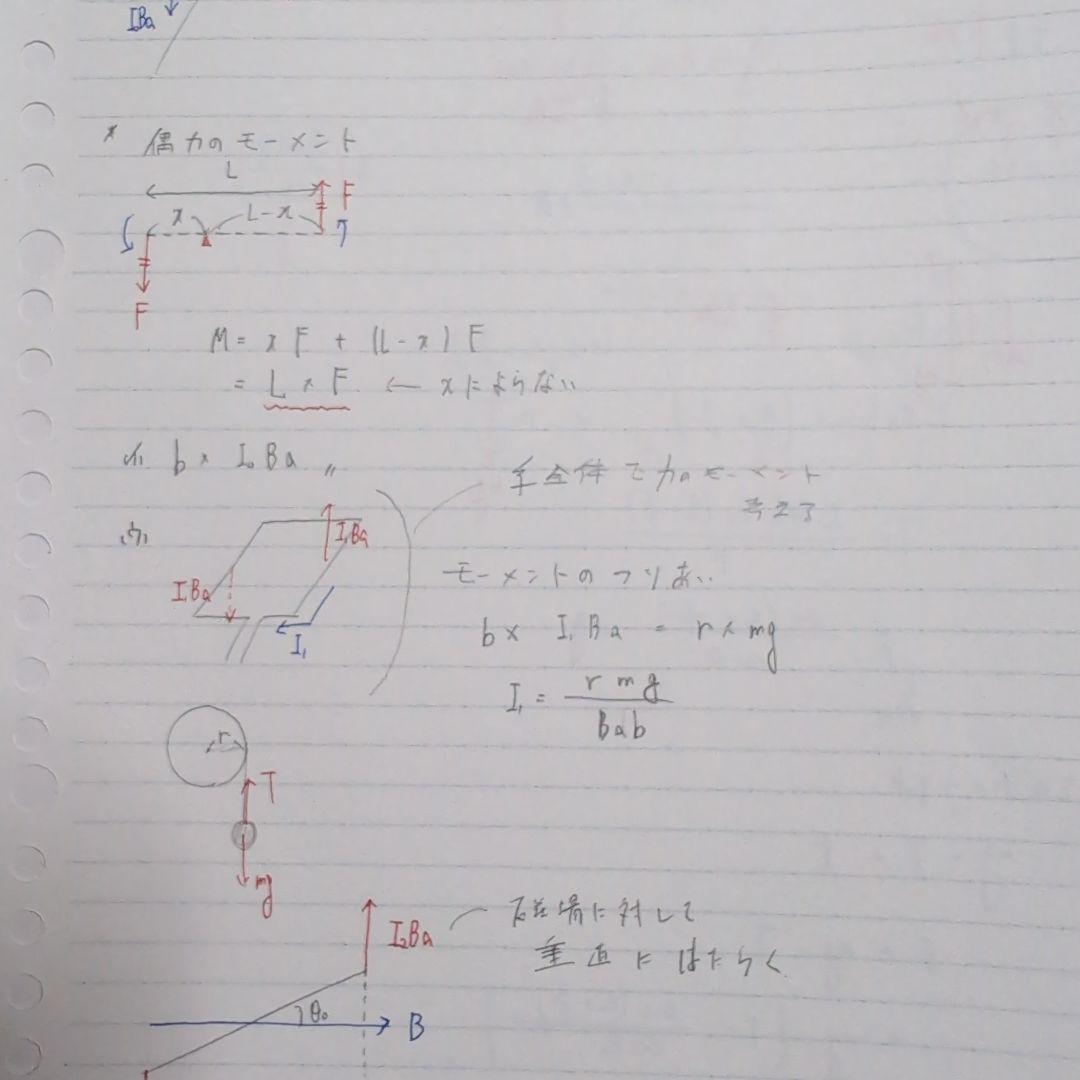 IBa
* 偶力のモーメント
L
x L-x F
F
M = x F + (L-x) F
= L × F ← xによらない
(イ) b × I₀Ba 〃
全体で力のモーメント
考える
(ウ) I₁Ba
I₁Ba
I₁
モーメントのつりあい
b × I₁Ba = r × mg
I₁ = r mg / Bab
r
T
mg
I₂Ba 磁場に対して
垂直にはたらく
θ₀ B